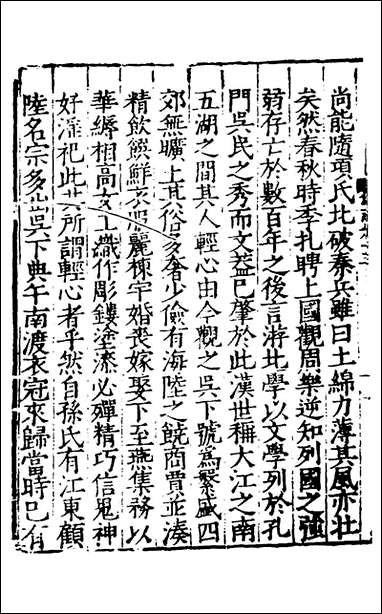 尚能隨項氏北破秦兵雖曰土綿力薄其風亦壯
矣然春秋時季札聘上國觀周樂逆知列國之強
弱存亡於數百年之後言游北學以文學列於孔
門吳民之秀而文蓋已肇於此漢世稱大江之南
五湖之間其人輕心由今觀之吳下號為繁盛四
郊無曠土其俗多奢少儉有海陸之饒商賈並湊
精飲饌鮮衣服麗棟宇婚喪嫁娶下至燕集務以
華縟相高女工織作彫鏤塗漆必殫精巧信鬼神
好淫祀此其所謂輕心者乎然自孫氏有江東顧
陸名宗多出吳下典午南渡衣冠來歸當時已有